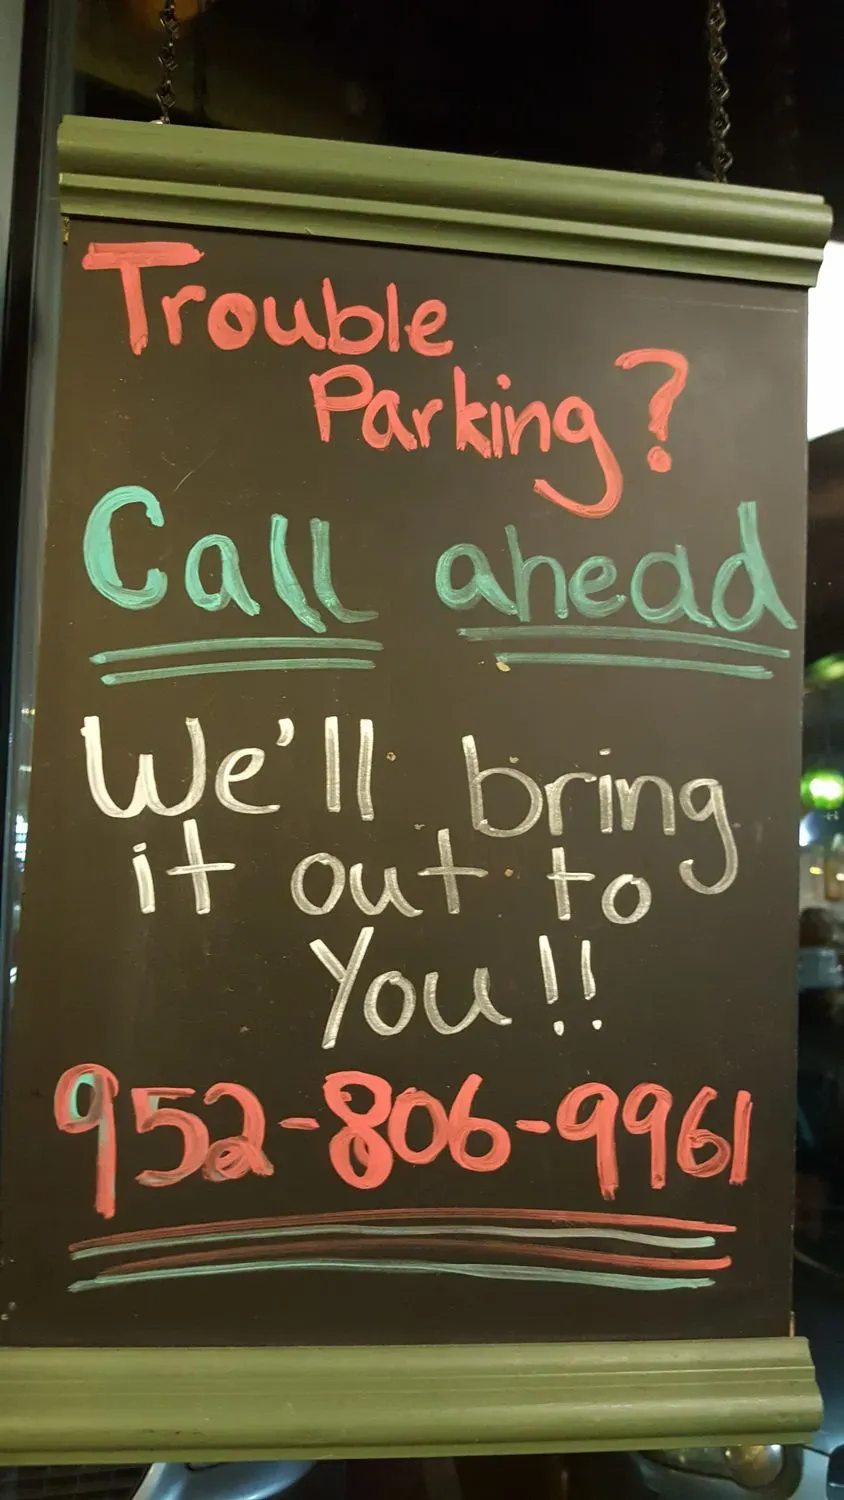 Trouble
Parking?
Call ahead
We'll bring
it out to
You!!
952-806-9961